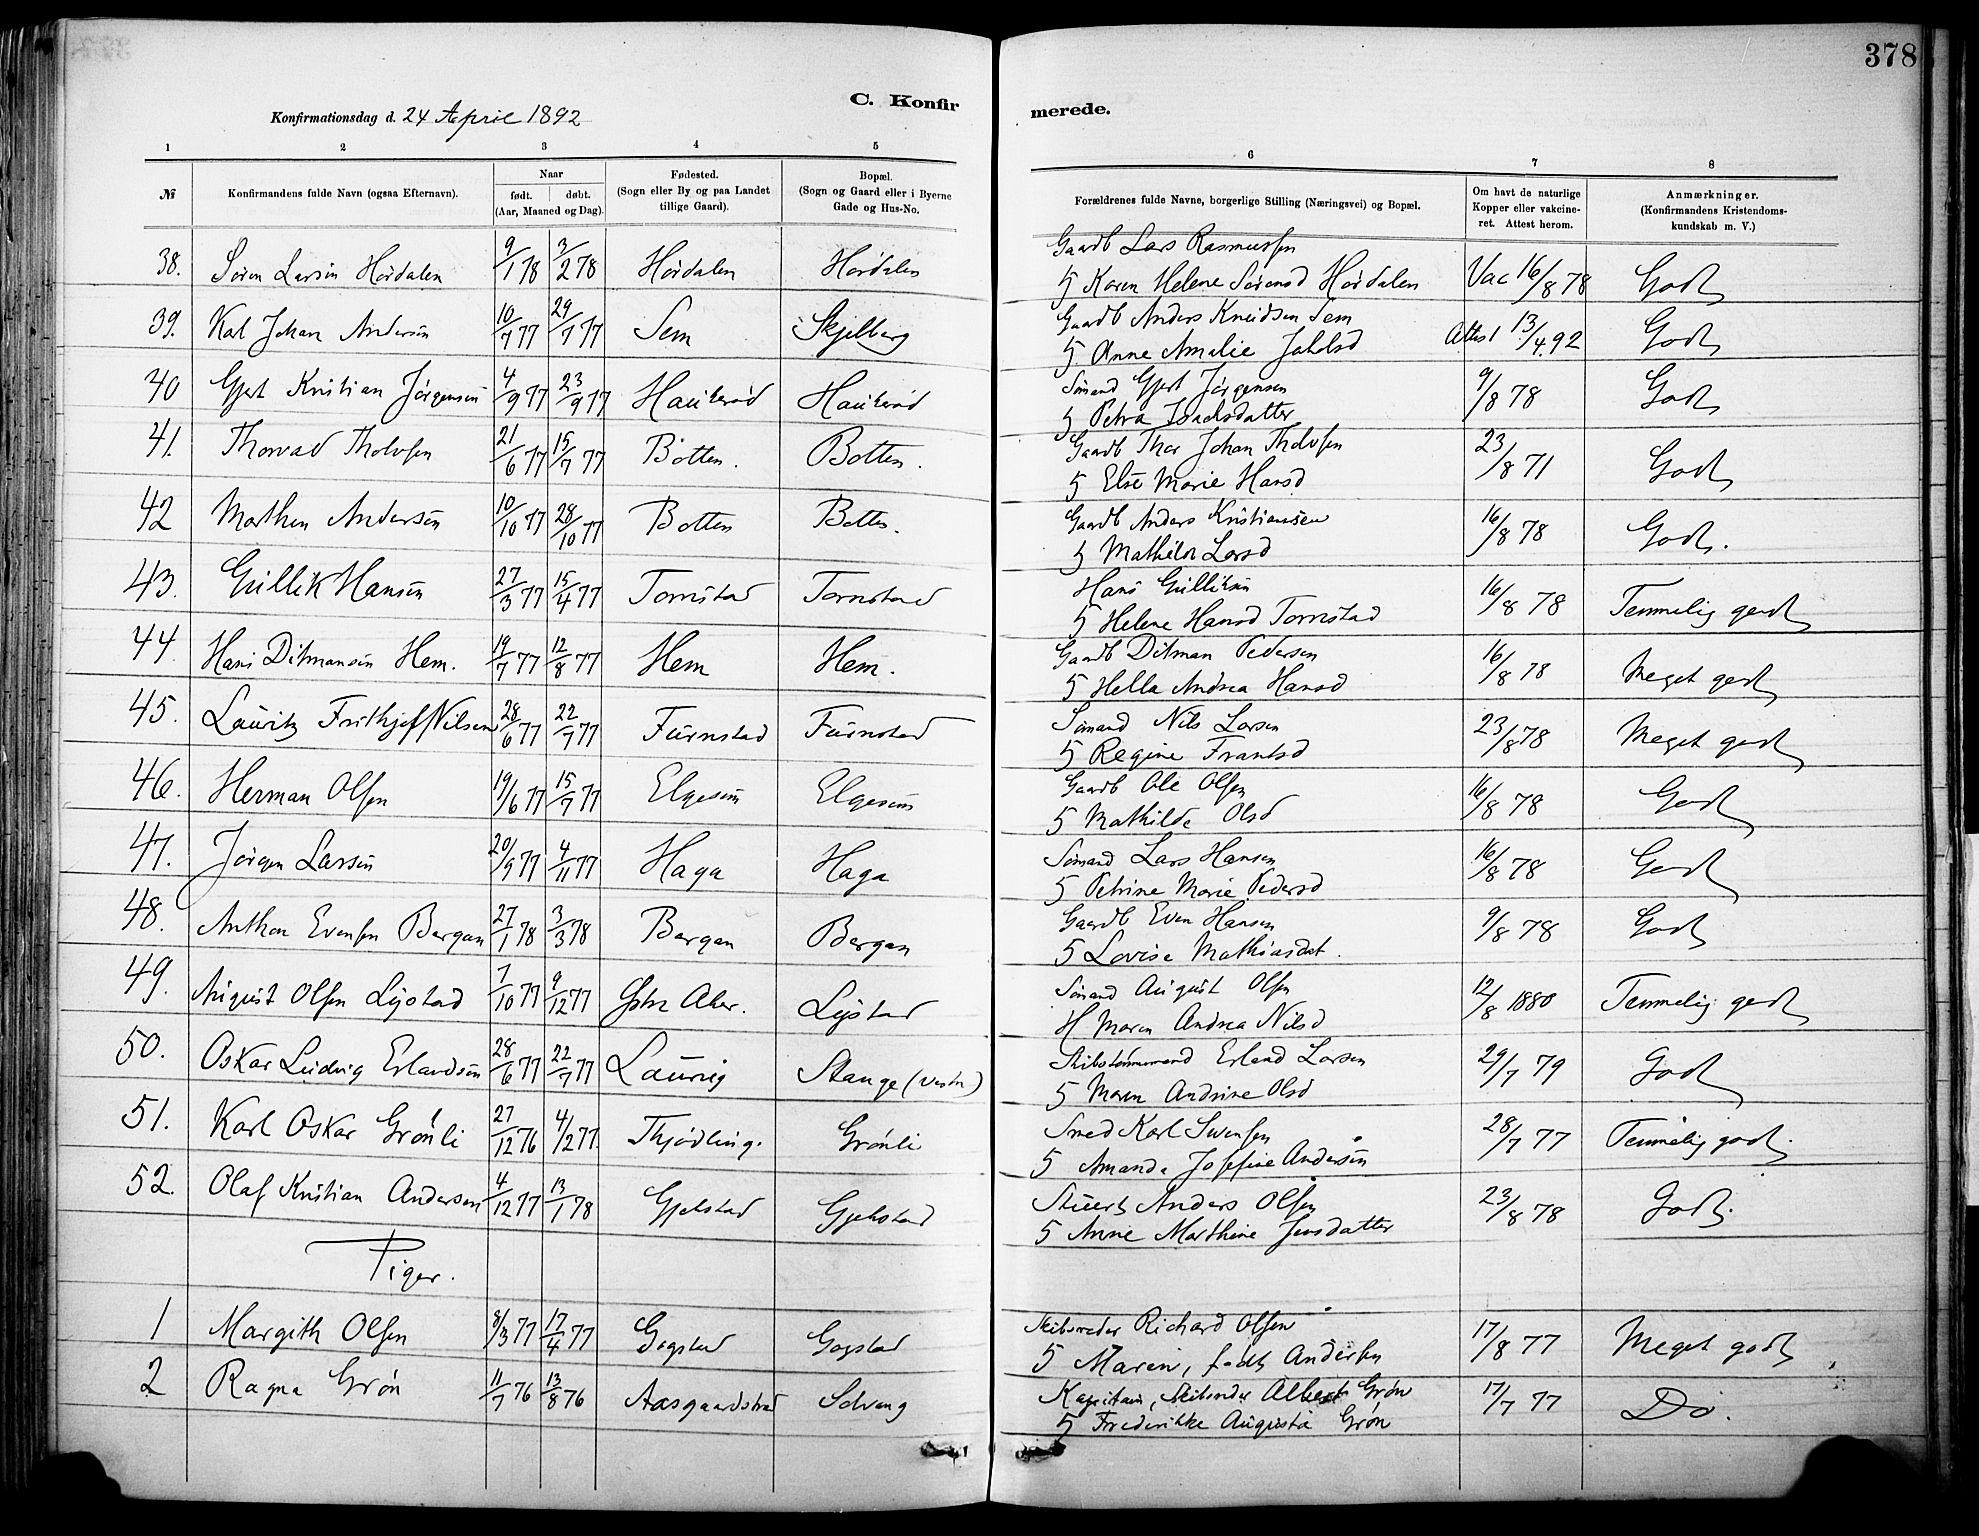 378
C. Konfir
merede.
Konfirmationsdag d. 24 April 1892
1 2 3 4 5 6 7 8
№ Konfirmandens fulde Navn (ogsaa Efternavn).
Naar
født. døbt.
(Aar, Maaned og Dag).
Fødested.
(Sogn eller By og paa Landet
tillige Gaard).
Bopæl.
(Sogn og Gaard eller i Byerne
Gade og Hus-No.
Forældrenes fulde Navne, borgerlige Stilling (Næringsvei) og Bopæl.
Om havt de naturlige
Kopper eller vakcine-
ret. Attest herom.
Anmærkninger.
(Konfirmandens Kristendoms-
kundskab m. V.)
Gaardb Lars Rasmussen
38. Søren Larsen Hørdalen 9/1 78 3/2 78 Hørdalen Hørdalen Karen Helene Sørensd Hørdalen Vac 16/8 78 Godt
Gaardb Anders Knudsen Sem
39. Karl Johan Andersen 10/7 77 29/7 77 Sem Skjelberg Anne Amalie Jakobsd Attest 13/4 92 Godt
Sømand Gjert Jørgensen
40 Gjert Kristian Jørgensen 4/9 77 23/9 77 Haukerød Haukerød Petra Isaksdatter 9/8 78 Godt
Gaardb Thor Johan Tholvsen
41. Thorvad Tholvsen 21/6 77 15/7 77 Botten. Botten. Else Marie Hansd 23/8 71 Godt
Gaardb Anders Kristiansen
42 Marthin Andersen 10/10 77 28/10 77 Botten Botten. Mathilde Larsd 16/8 78 Godt.
Hans Gulliksen
43. Gullik Hansen 27/3 77 15/4 77 Tornstad Tornstad Helene Hansd Tornstad 16/8 78 Temmelig godt
Gaardb Ditman Pedersen
44 Hans Ditmansen Hem. 19/7 77 12/8 77 Hem Hem. Hella Andrea Hansd 16/8 78 Meget godt
Sømand Nils Larsen
45. Lauritz Frithjof Nilsen 28/6 77 22/7 77 Furustad Furustad Regine Frantsd 23/8 78 Meget godt
Gaardb Ole Olsen
46. Herman Olsen 19/6 77 15/7 77 Elgesem Elgesem Mathilde Olsd 16/8 78 Godt
Sømand Lars Hansen
47. Jørgen Larsen 20/9 77 4/11 77 Haga Haga Petrine Marie Pedersd 16/8 78 Godt
Gaardb Even Hansen
48. Anthon Evensen Bergan 27/1 78 3/3 78 Bergan Bergan Lovise Mathiasdat. 9/8 78 Godt
Sømand August Olsen
49. August Olsen Lystad 7/10 77 9/12 77 Østre Aker. Lystad H Maren Andrea Nilsd 12/8 1880 Temmelig godt
Skibstømmermand Erland Larsen
50. Oskar Ludvig Erlandsen 28/6 77 22/7 77 Laurvig Stange (vestre) Maren Andrine Olsd 29/7 79 Godt
Smed Karl Swensen
51. Karl Oskar Grønli 27/12 76 4/2 77 Thjødling. Grønli Amanda Josefine Andersen 28/7 77 Temmelig godt.
Stuert Anders Olsen
52. Olaf Kristian Andersen 4/12 77 13/1 78 Gjekstad Gjekstad Anne Marthine Jensdatter 23/8 78 Godt.
Piger.
Skibsreder Richard Olsen
1 Margith Olsen 8/3 77 17/4 77 Gogstad Gogstad Maren, født Andersen 17/8 77 Meget godt
Kapitain, Skibsreder Albert Grøn
2 Ragna Grøn 11/7 76 13/8 76 Aasgaardstrad Solvang Frederikke Augusta Grøn 17/7 77 Do.